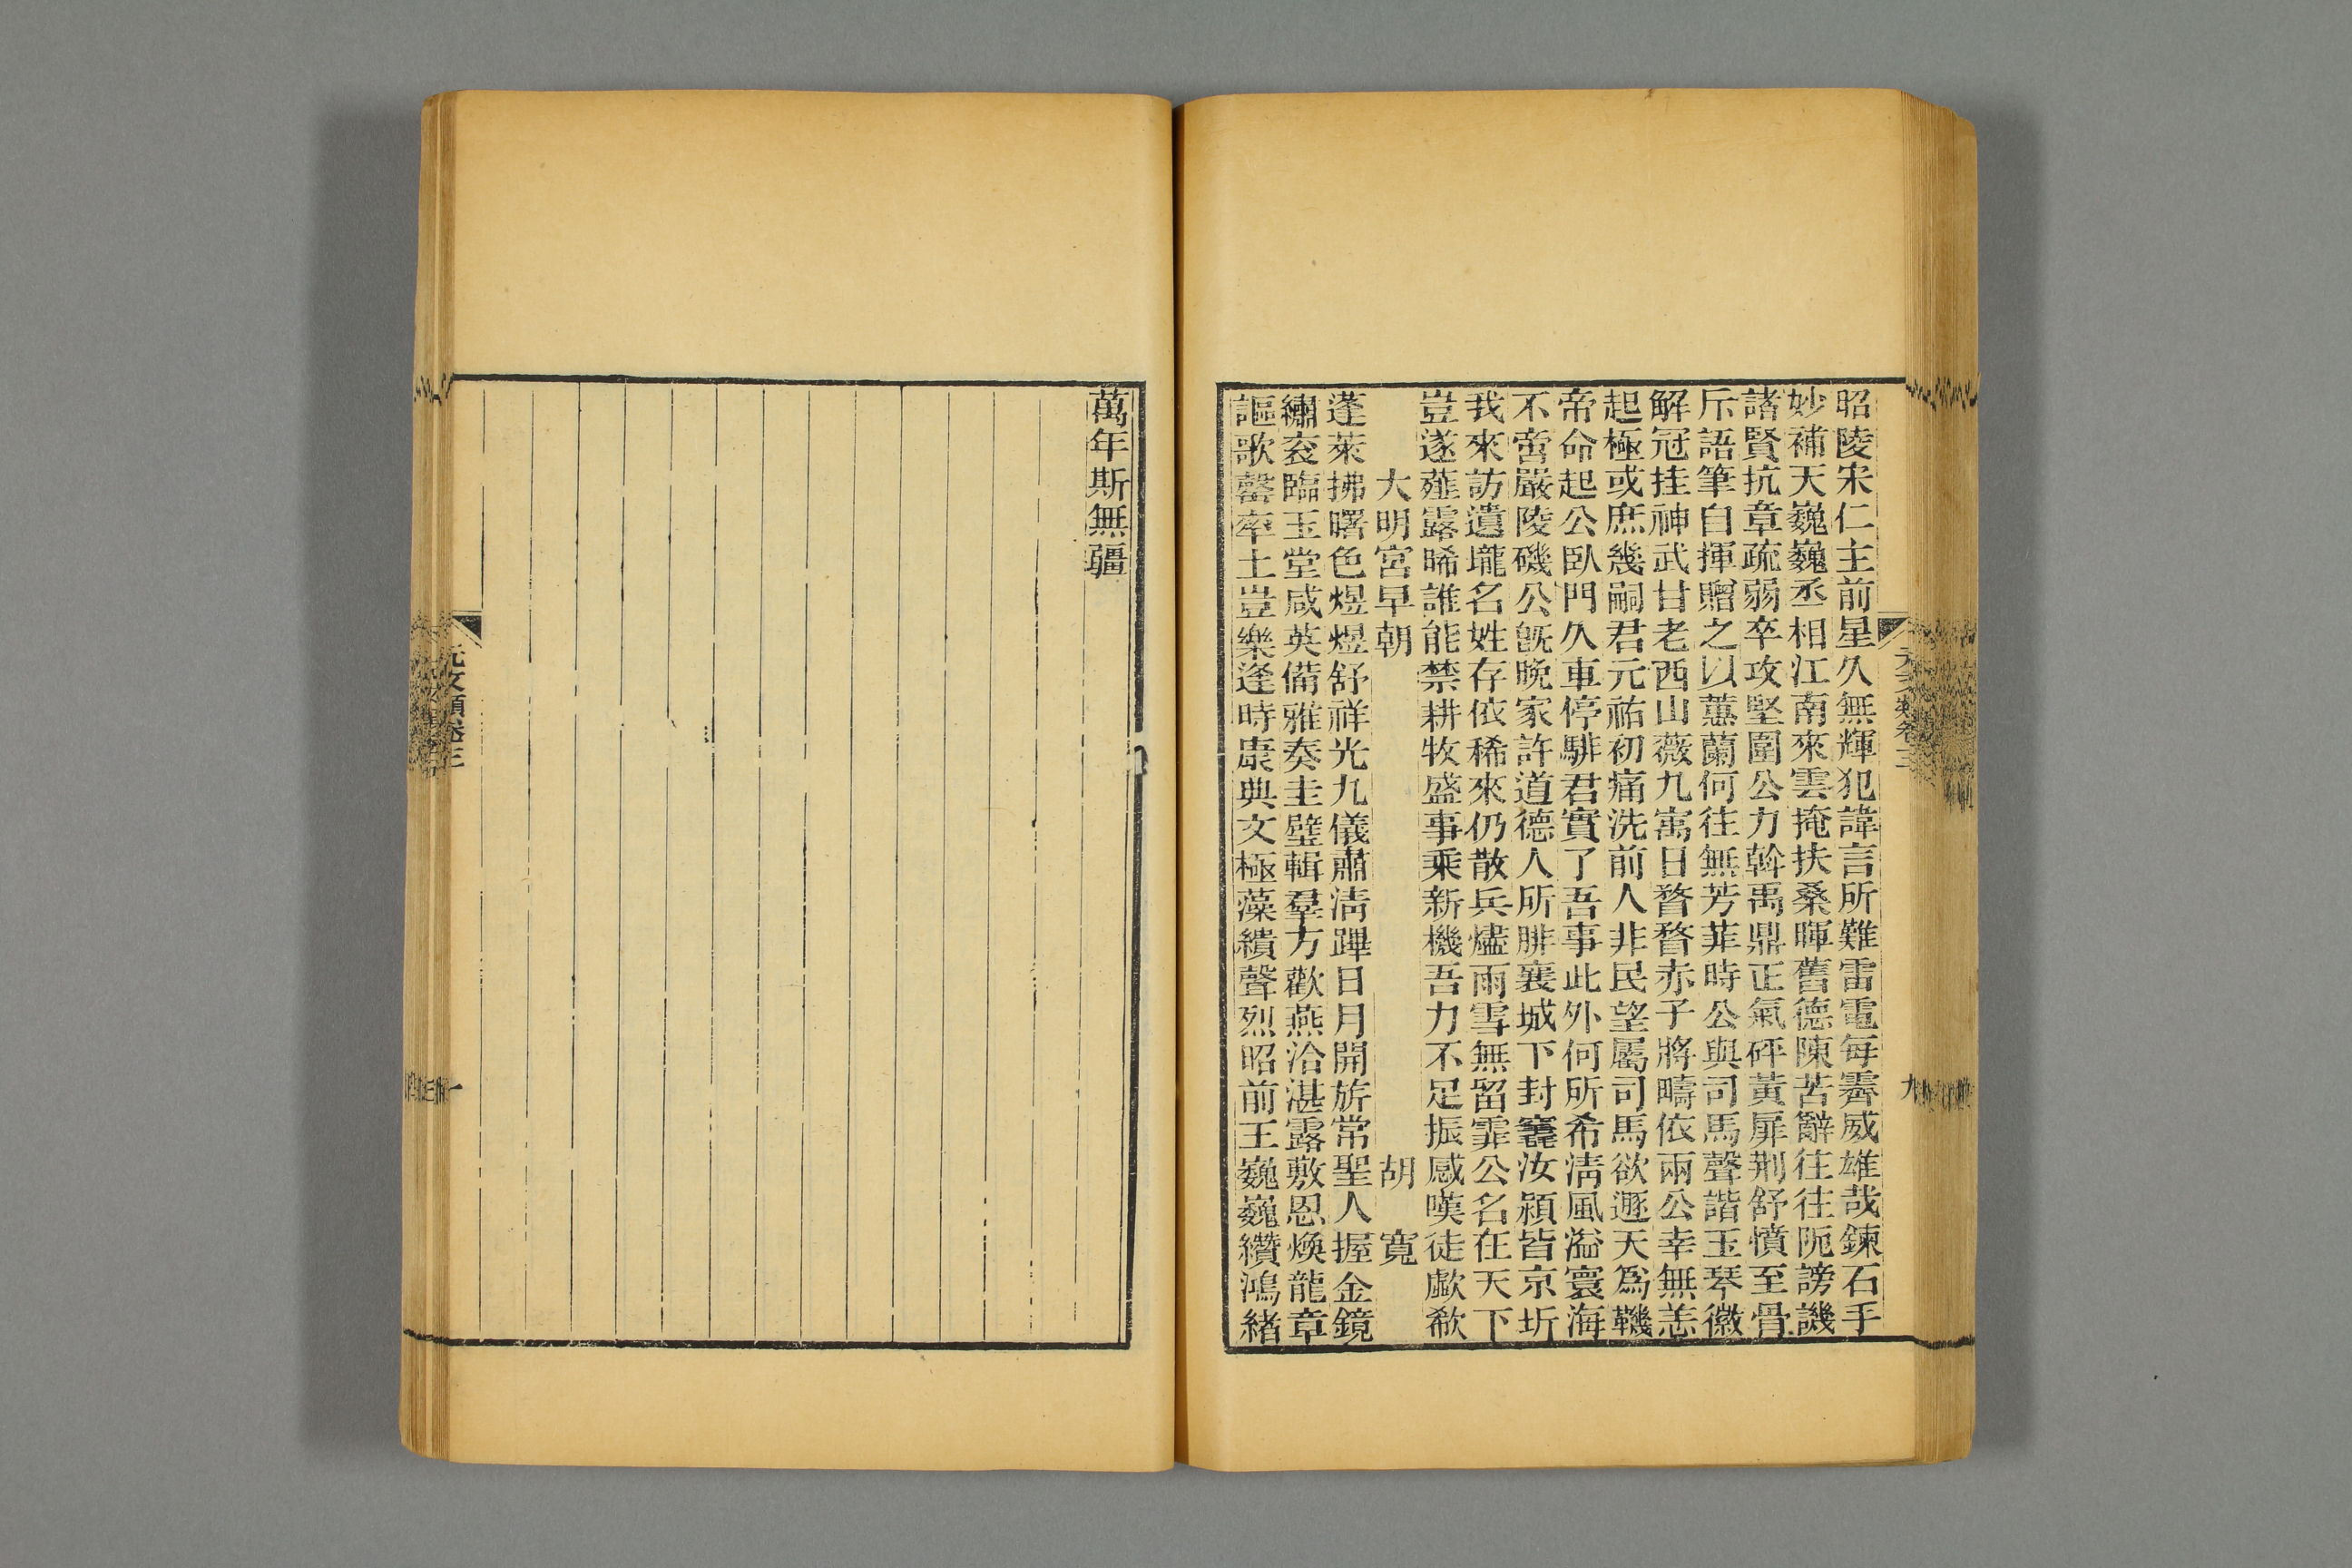 昭陵宋仁主前星久無輝犯諱言所難雷電每霽威雄哉鍊石手
妙補天巍巍丞相江南來雲掩扶桑暉舊德陳苦辭往往阨謗譏
諸賢抗章疏弱卒攻堅圍公力斡禹鼎正氣砰黃扉荆舒憤至骨
斥語筆自揮贈之以蕙蘭何往無芳菲時公與司馬聲諧玉琴徽
解冠挂神武甘老西山薇九寓日瞀瞀赤子將疇依兩公幸無恙
起極或庶幾嗣君元祐初痛洗前人非民望屬司馬欲遯天爲鞿
帝命起公臥門久車停騑君實了吾事此外何所希淸風溢寰海
不啻嚴陵磯公旣晚家許道德人所腓襄城下封窆汝潁皆京圻
我來訪遺壠名姓存依稀來仍散兵燼雨雪無留霏公名在天下
豈遂薤露晞誰能禁耕牧盛事乘新機吾力不足振感嘆徒歔欷
大明宮早朝 胡 寬
蓬萊拂曙色煜煜舒祥光九儀肅淸蹕日月開旂常聖人握金鏡
繡袞臨玉堂咸英備雅奏圭璧輯羣方歡燕洽湛露敷恩煥龍章
謳歌罄率土豈樂逢時康典文極藻繢聲烈昭前王巍巍纘鴻緖
元文類卷三
九
萬年斯無疆
元文類卷三